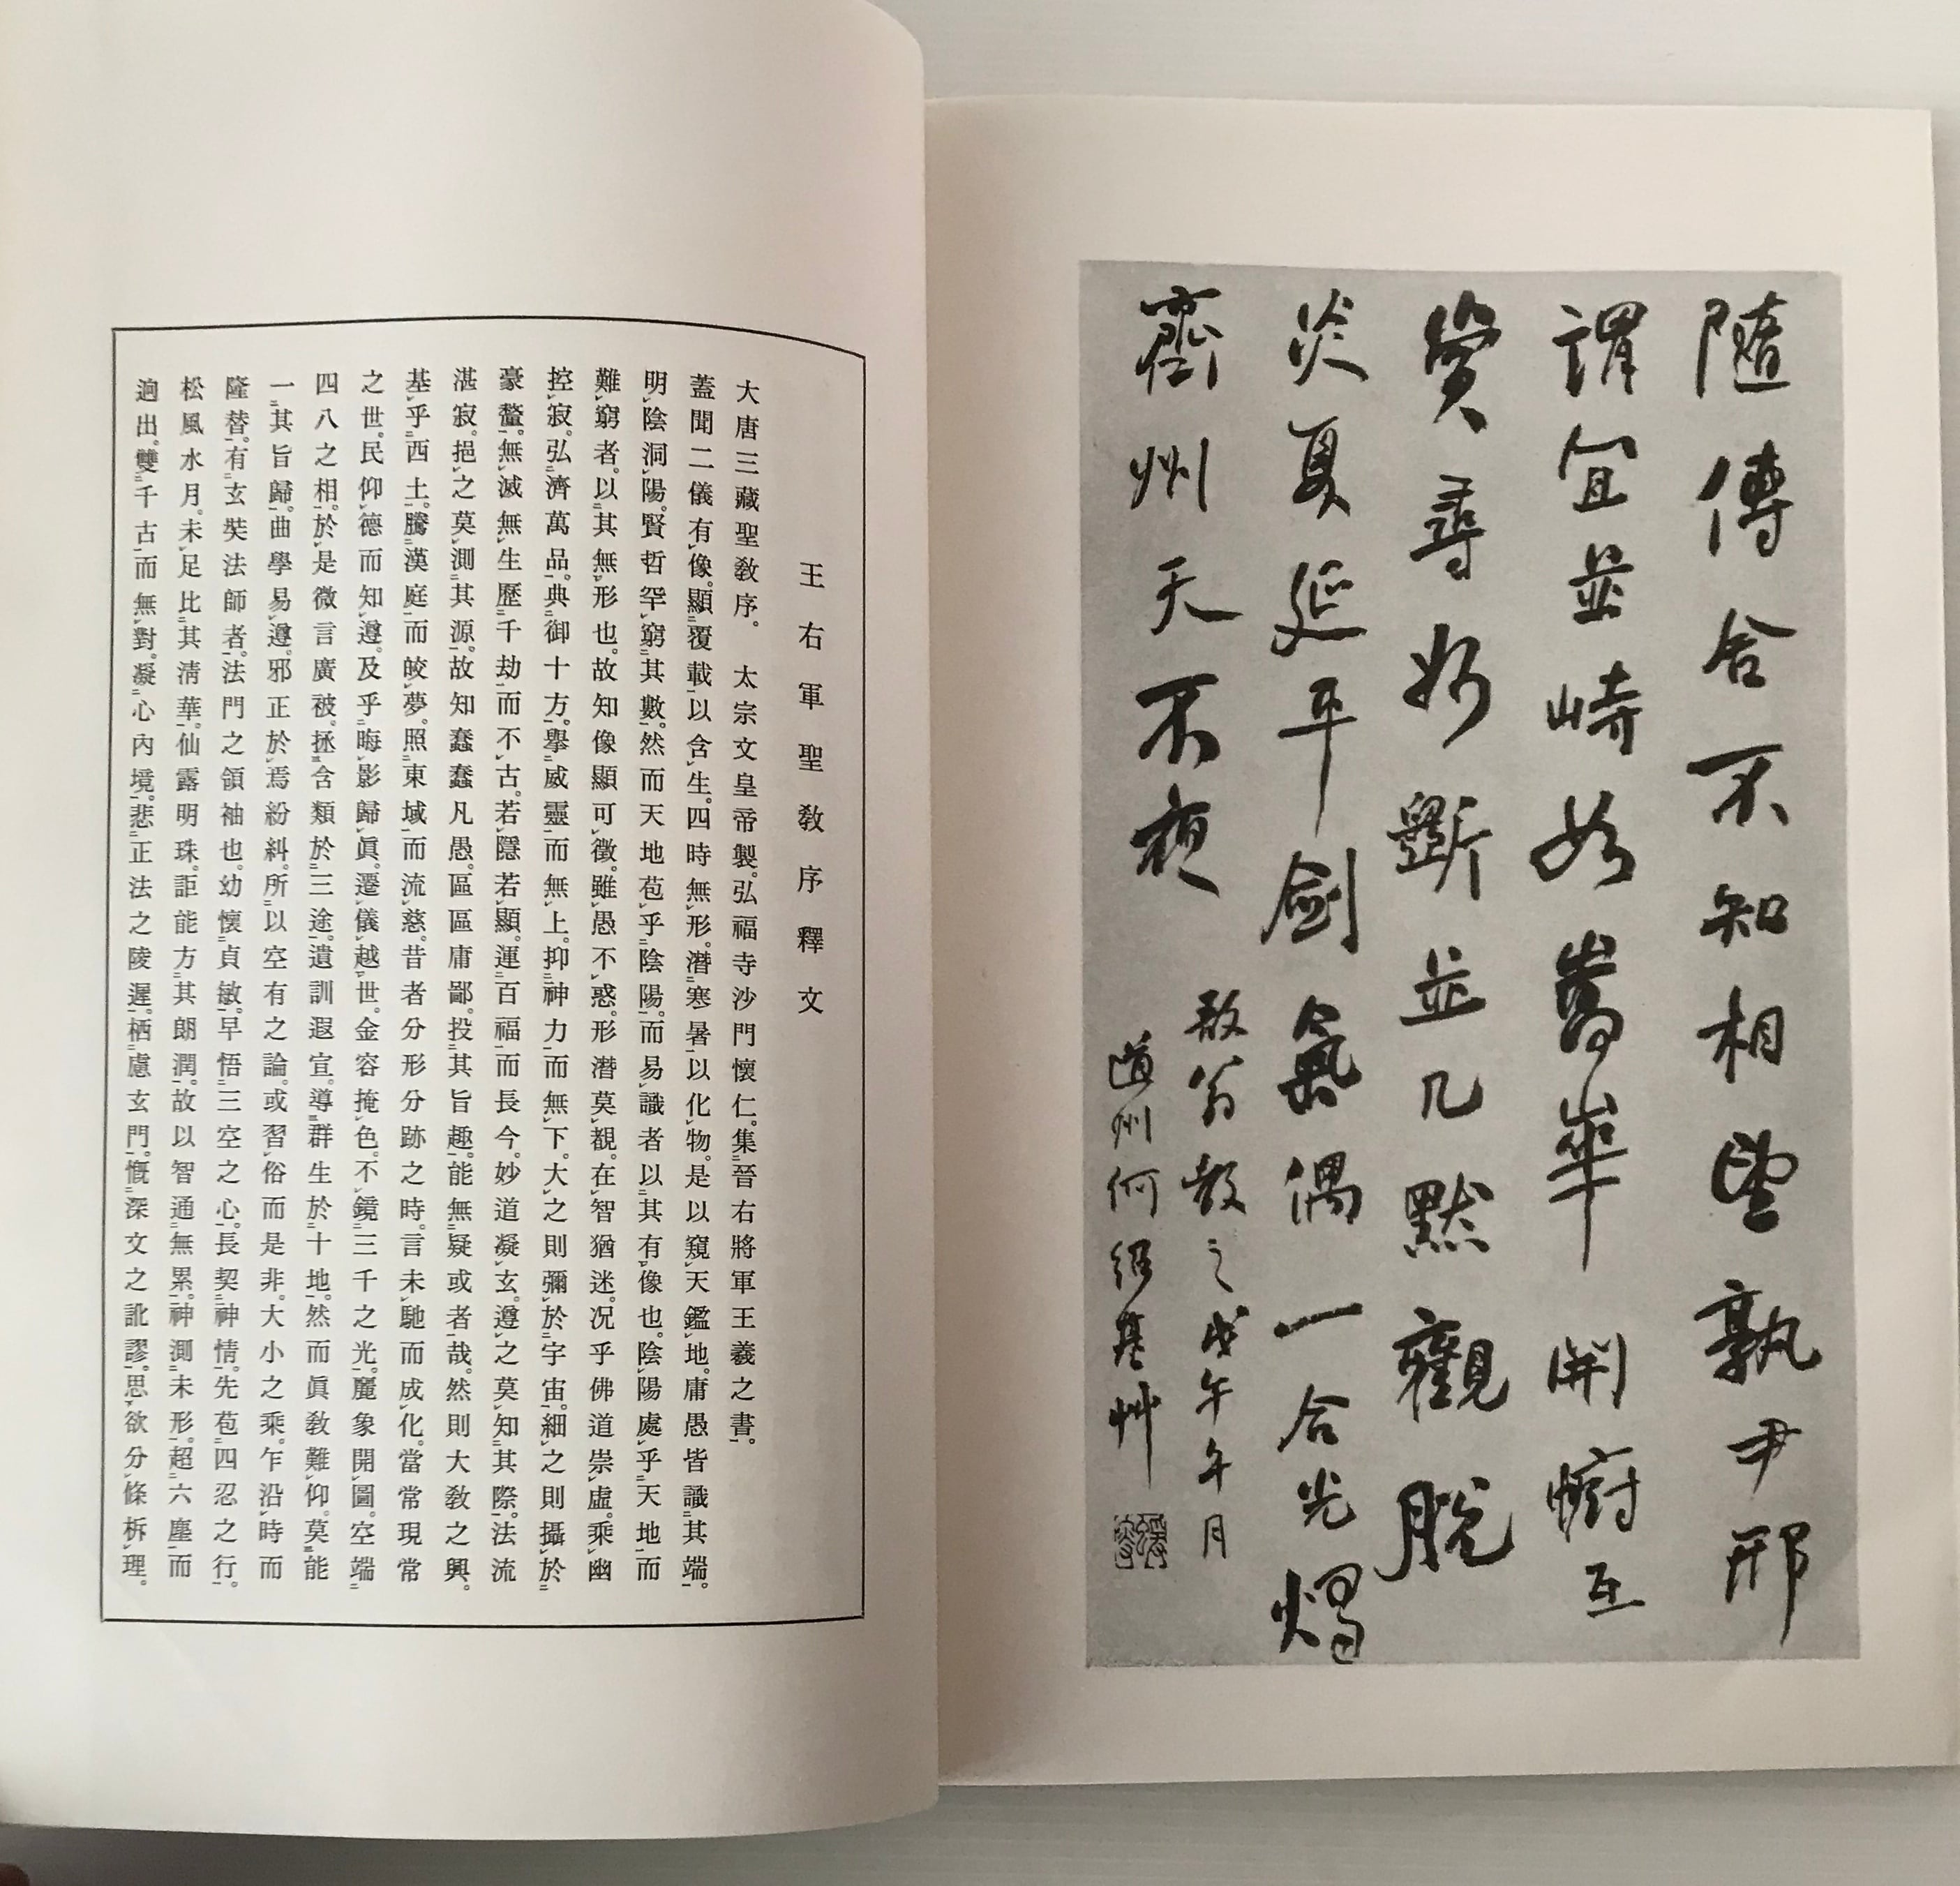 隨傳合不知相望孰尹邢
謂宜並峙如嵩華開櫥互
賞尋好斷並几默觀脫
炎夏延平劍氣偶一合光燭
齊州天不夜
翁教之戊午午月
道州何紹基艸
王右軍聖教序釋文
大唐三藏聖教序。太宗文皇帝製。弘福寺沙門懷仁。集晉右將軍王羲之書。
蓋聞二儀有像。顯覆載以含生。四時無形。潛寒暑以化物。是以窺天鑑地。庸愚皆識其端。
明陰洞陽。賢哲罕窮其數。然而天地苞乎陰陽。而易識者以其有像也。陰陽處乎天地。而
難窮者。以其無形也。故知像顯可徵。雖愚不惑。形潛莫覩。在智猶迷。況乎佛道崇虛。乘幽
控寂。弘濟萬品。典御十方。擧威靈而無上。抑神力而無下。大之則彌於宇宙。細之則攝於
豪釐。無滅無生歷千劫而不古。若隱若顯。運百福而長今。妙道凝玄。遵之莫知其際。法流
湛寂。挹之莫測其源。故知蠢蠢凡愚。區區庸鄙。投其旨趣。能無疑或者哉。然則大教之興。
基乎西土。騰漢庭而皎夢。照東域而流慈。昔者分形分跡之時。言未馳而成化。當常現常
之世。民仰德而知遵。及乎晦影歸眞。遷儀越世。金容掩色。不鏡三千之光。麗象開圖。空端
四八之相。於是微言廣被。拯含類於三途。遺訓遐宣。導群生於十地。然而眞教難仰。莫能
一其旨歸。曲學易遵。邪正於焉紛糾。所以空有之論。或習俗而是非。大小之乘。乍沿時而
隆替。有玄奘法師者。法門之領袖也。幼懷貞敏。早悟三空之心。長契神情。先苞四忍之行。
松風水月。未足比其清華。仙露明珠。詎能方其朗潤。故以智通無累。神測未形。超六塵而
逈出。雙千古而無對。凝心內境。悲正法之陵遲。栖慮玄門。慨深文之訛謬。思欲分條析理。